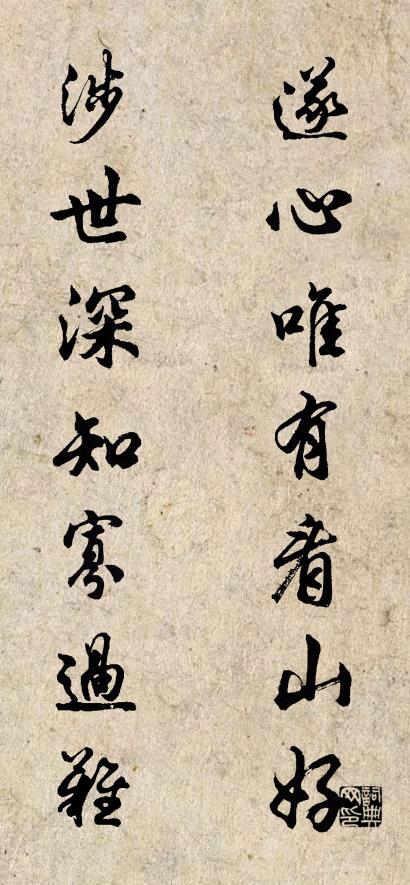 遂心唯有看山好
涉世深知寡過難
詞典网印